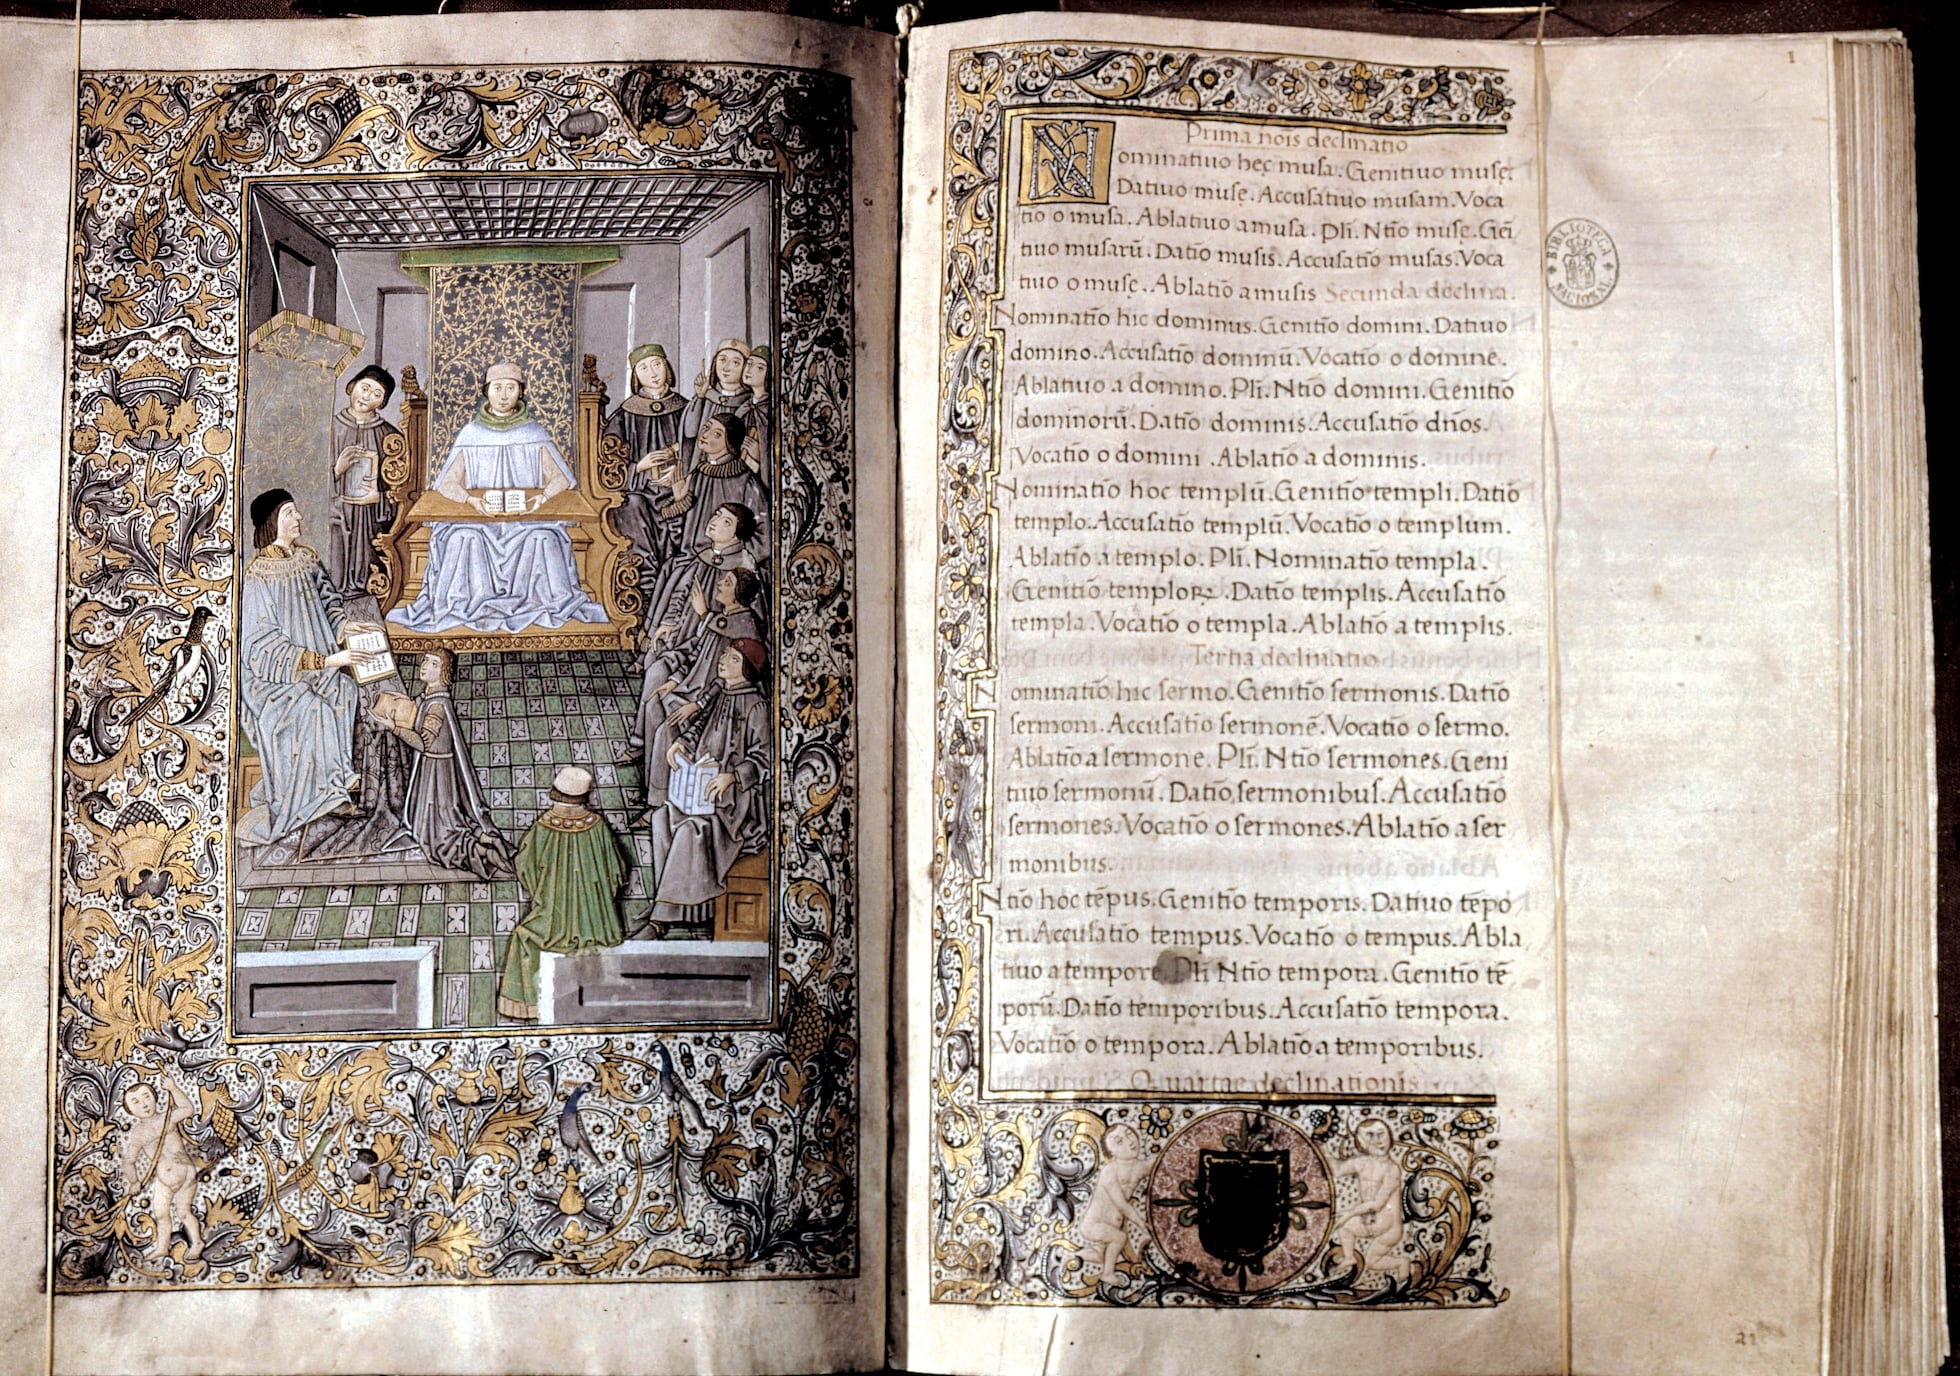 1
Prima nois declinatio
Nominatiuo hec musa. Genitiuo musę
Datiuo musę. Accusatiuo musam. Voca
tio o musa. Ablatiuo a musa. Pli. Ntio musę. Geti
tiuo musarū. Datio musis. Accusatio musas. Voca
tiuo o musę. Ablatio a musis Secunda declina.
Nominatio hic dominus. Genitio domini. Datiuo
domino. Accusatio dominū. Vocatio o domine.
Ablatiuo a domino. Pli. Ntio domini. Genitio
dominorū. Datio dominis. Accusatio dnos.
Vocatio o domini. Ablatio a dominis.
Nominatio hoc templū. Genitio templi. Datio
templo. Accusatio templū. Vocatio o templum.
Ablatio a templo. Pli. Nominatio templa.
Genitio temploꝝ. Datio templis. Accusatio
templa. Vocatio o templa. Ablatio a templis.
Tertia declinatio
Nominatio hic sermo. Genitio sermonis. Datio
sermoni. Accusatio sermonē. Vocatio o sermo.
Ablatio a sermone. Pli. Ntio sermones. Geni
tiuo sermonū. Datio sermonibus. Accusatio
sermones. Vocatio o sermones. Ablatio a ser
monibus.
Ntio hoc tēpus. Genitio temporis. Datiuo tēpo
ri. Accusatio tempus. Vocatio o tempus. Abla
tiuo a tempore Pli Ntio tempora. Genitio tē
porū. Datio temporibus. Accusatio tempora.
Vocatio o tempora. Ablatio a temporibus.
Quartae declinationis
BIBLIOTECA NACIONAL
21